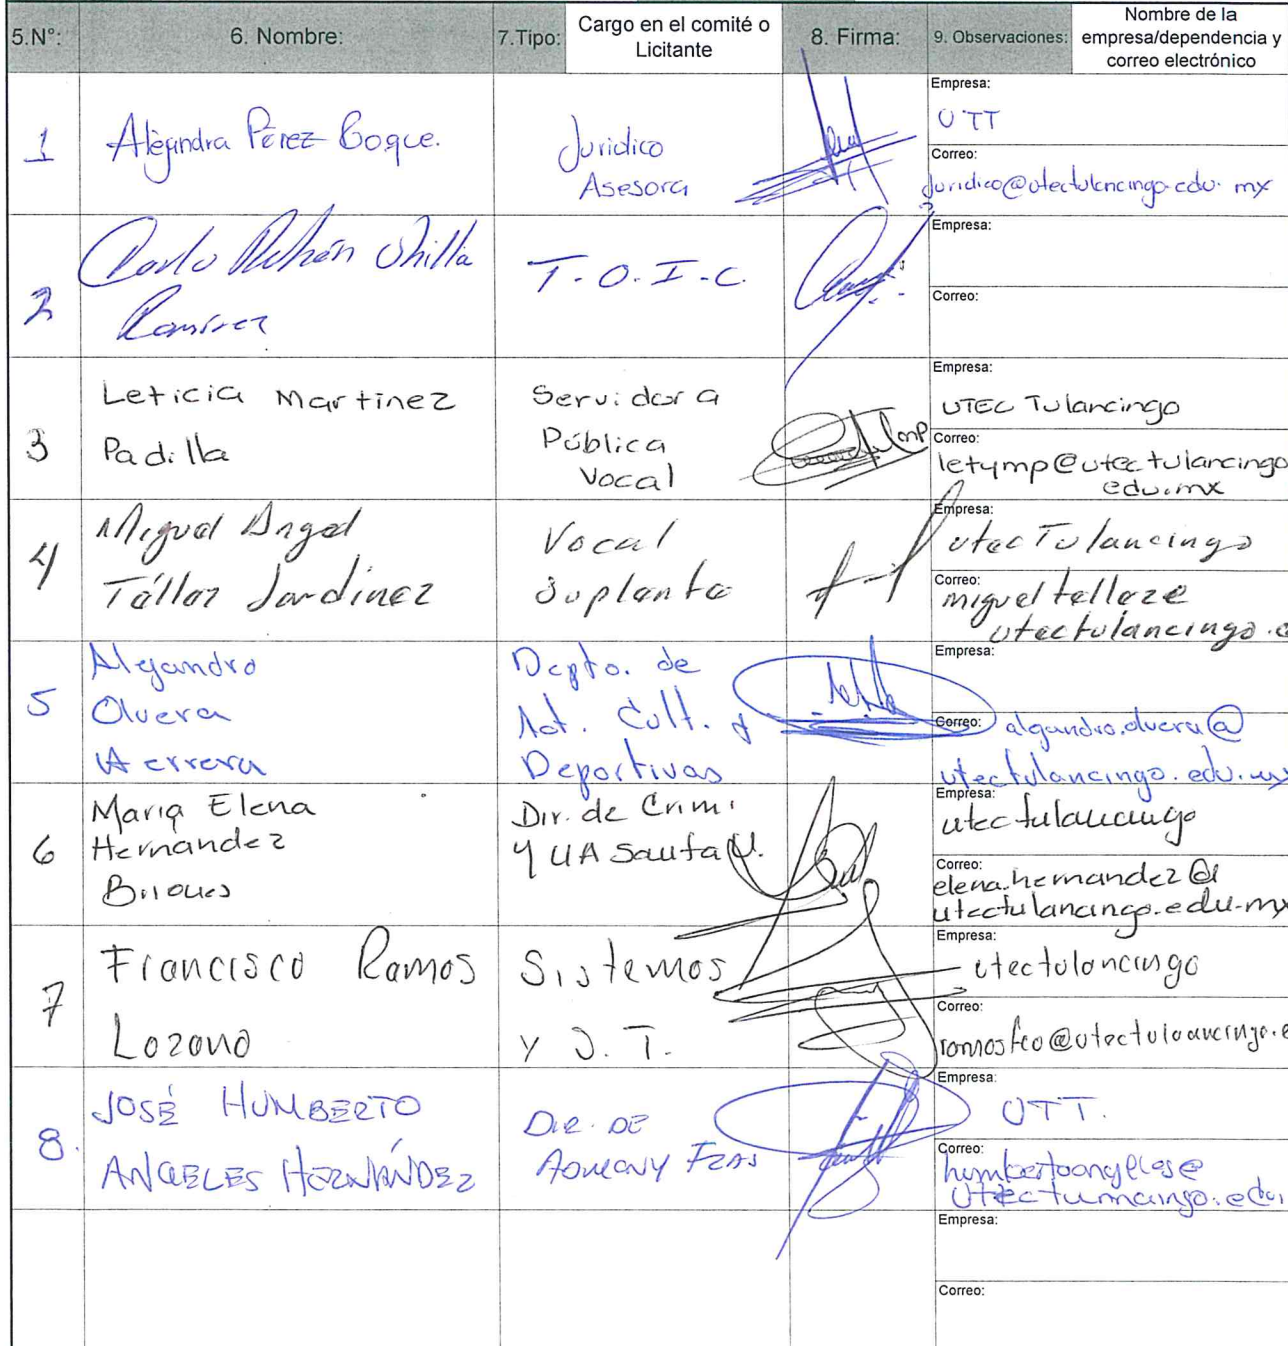 5.N°: 6. Nombre: 7.Tipo: Cargo en el comité o Licitante 8. Firma: 9. Observaciones: Nombre de la empresa/dependencia y correo electrónico
1 Alejandra Pérez Boque. Juridico Asesora
Empresa: UTT
Correo: Juridico@utectulancingo.edu.mx
2 Carlo Rubén Unilla Ramírez T.O.I.C.
Empresa:
Correo:
3 Leticia Martinez Padilla Servidora Pública Vocal
Empresa: UTEC Tulancingo
Correo: letymp@utectulancingo edu.mx
4 Miguel Angel Téllez Jardinez Vocal Suplente
Empresa: utec Tulancingo
Correo: migueltelleze utectulancingo.e
5 Alejandro Olvera Herrera Depto. de Act. Cult. y Deportivas
Empresa:
Correo: alejandro.olvera@ utectulancingo.edu.mx
6 Maria Elena Hernandez Briones Dir. de Crimi y UA Santa U.
Empresa: utec tulancingo
Correo: elena.hernandez@ utectulancingo.edu.mx
7 Francisco Ramos Lozano Sistemas y J.T.
Empresa: utectulancingo
Correo: ramosfco@utectuloancingo.e
8. JOSÉ HUMBERTO ANGELES HERNÁNDEZ DIR. DE ADMON Y FZAS
Empresa: UTT.
Correo:
Empresa:
Correo: